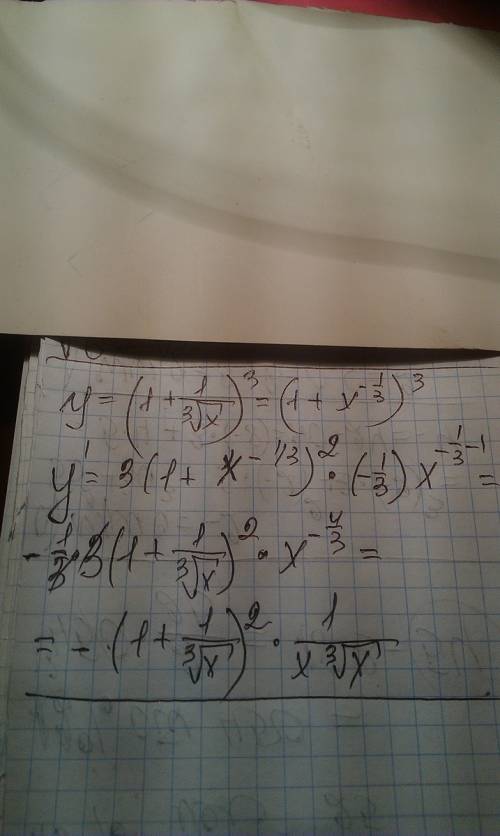 y = (1 + 1/∛x)³ = (1 + x^(-1/3))³
y' = 3(1 + x^(-1/3))² · (-1/3) x^(-1/3-1) =
- 1/3 · 3(1 + 1/∛x)² · x^(-4/3) =
= - (1 + 1/∛x)² · 1/(x∛x)